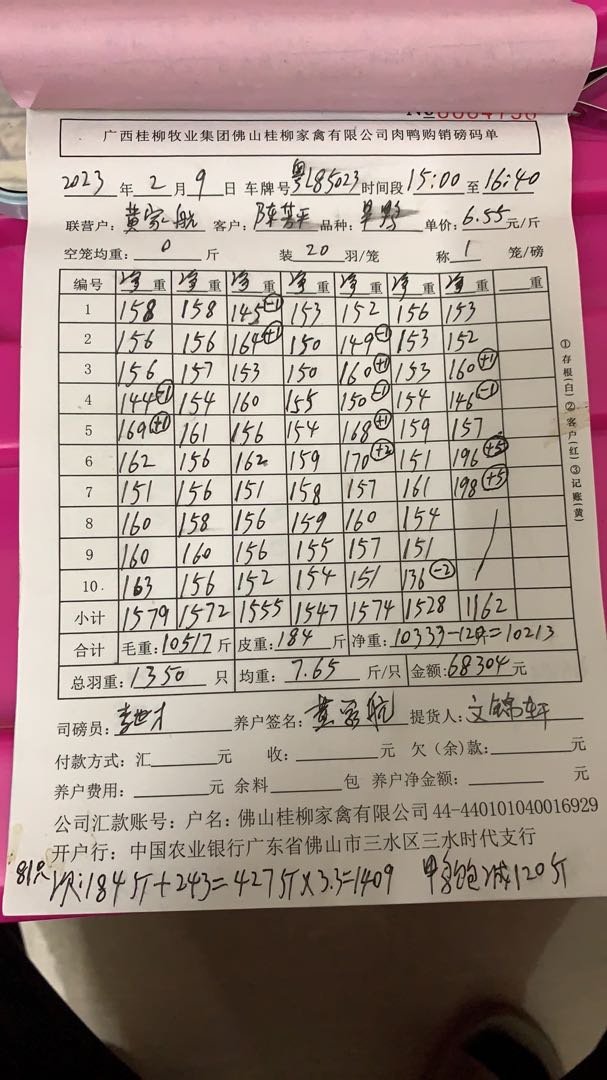 广西桂柳牧业集团佛山桂柳家禽有限公司肉鸭购销磅码单
2023 年 2 月 9 日 车牌号 粤L85023 时间段 15:00 至 16:40
联营户: 黄家航 客户: 陈芳平 品种: 早野 单价: 6.55 元/斤
空笼均重: 0 斤 装 20 羽/笼 称 1 笼/磅
编号 净重 净重 净重 净重 净重 净重 净重 重
1 158 158 145 -1 153 152 156 153
2 156 156 164 +1 150 149 -1 153 152
3 156 157 153 150 160 +1 153 160 +1
4 144 -1 154 160 155 150 -1 154 146 -1
5 169 +1 161 156 154 168 +1 159 157
6 162 156 162 159 170 +2 151 196 +5
7 151 156 151 158 157 161 198 +5
8 160 158 156 159 160 154
9 160 160 156 155 157 151
10. 163 156 152 154 151 136 -2
小计 1579 1572 1555 1547 1574 1528 1162
合计 毛重: 10517 斤 皮重: 184 斤 净重: 10333-120=10213
总羽重: 1350 只 均重: 7.65 斤/只 金额: 68304 元
司磅员: 李世才 养户签名: 黄家航 提货人: 文锦轩
付款方式: 汇 元 收: 元 欠(余)款: 元
养户费用: 元 余料 包 养户净金额: 元
公司汇款账号: 户名: 佛山桂柳家禽有限公司 44-440101040016929
开户行: 中国农业银行广东省佛山市三水区三水时代支行
81只 次:184斤+243=427斤×3.3=1409 饱减120斤
①存根(白)②客户(红)③记账(黄)